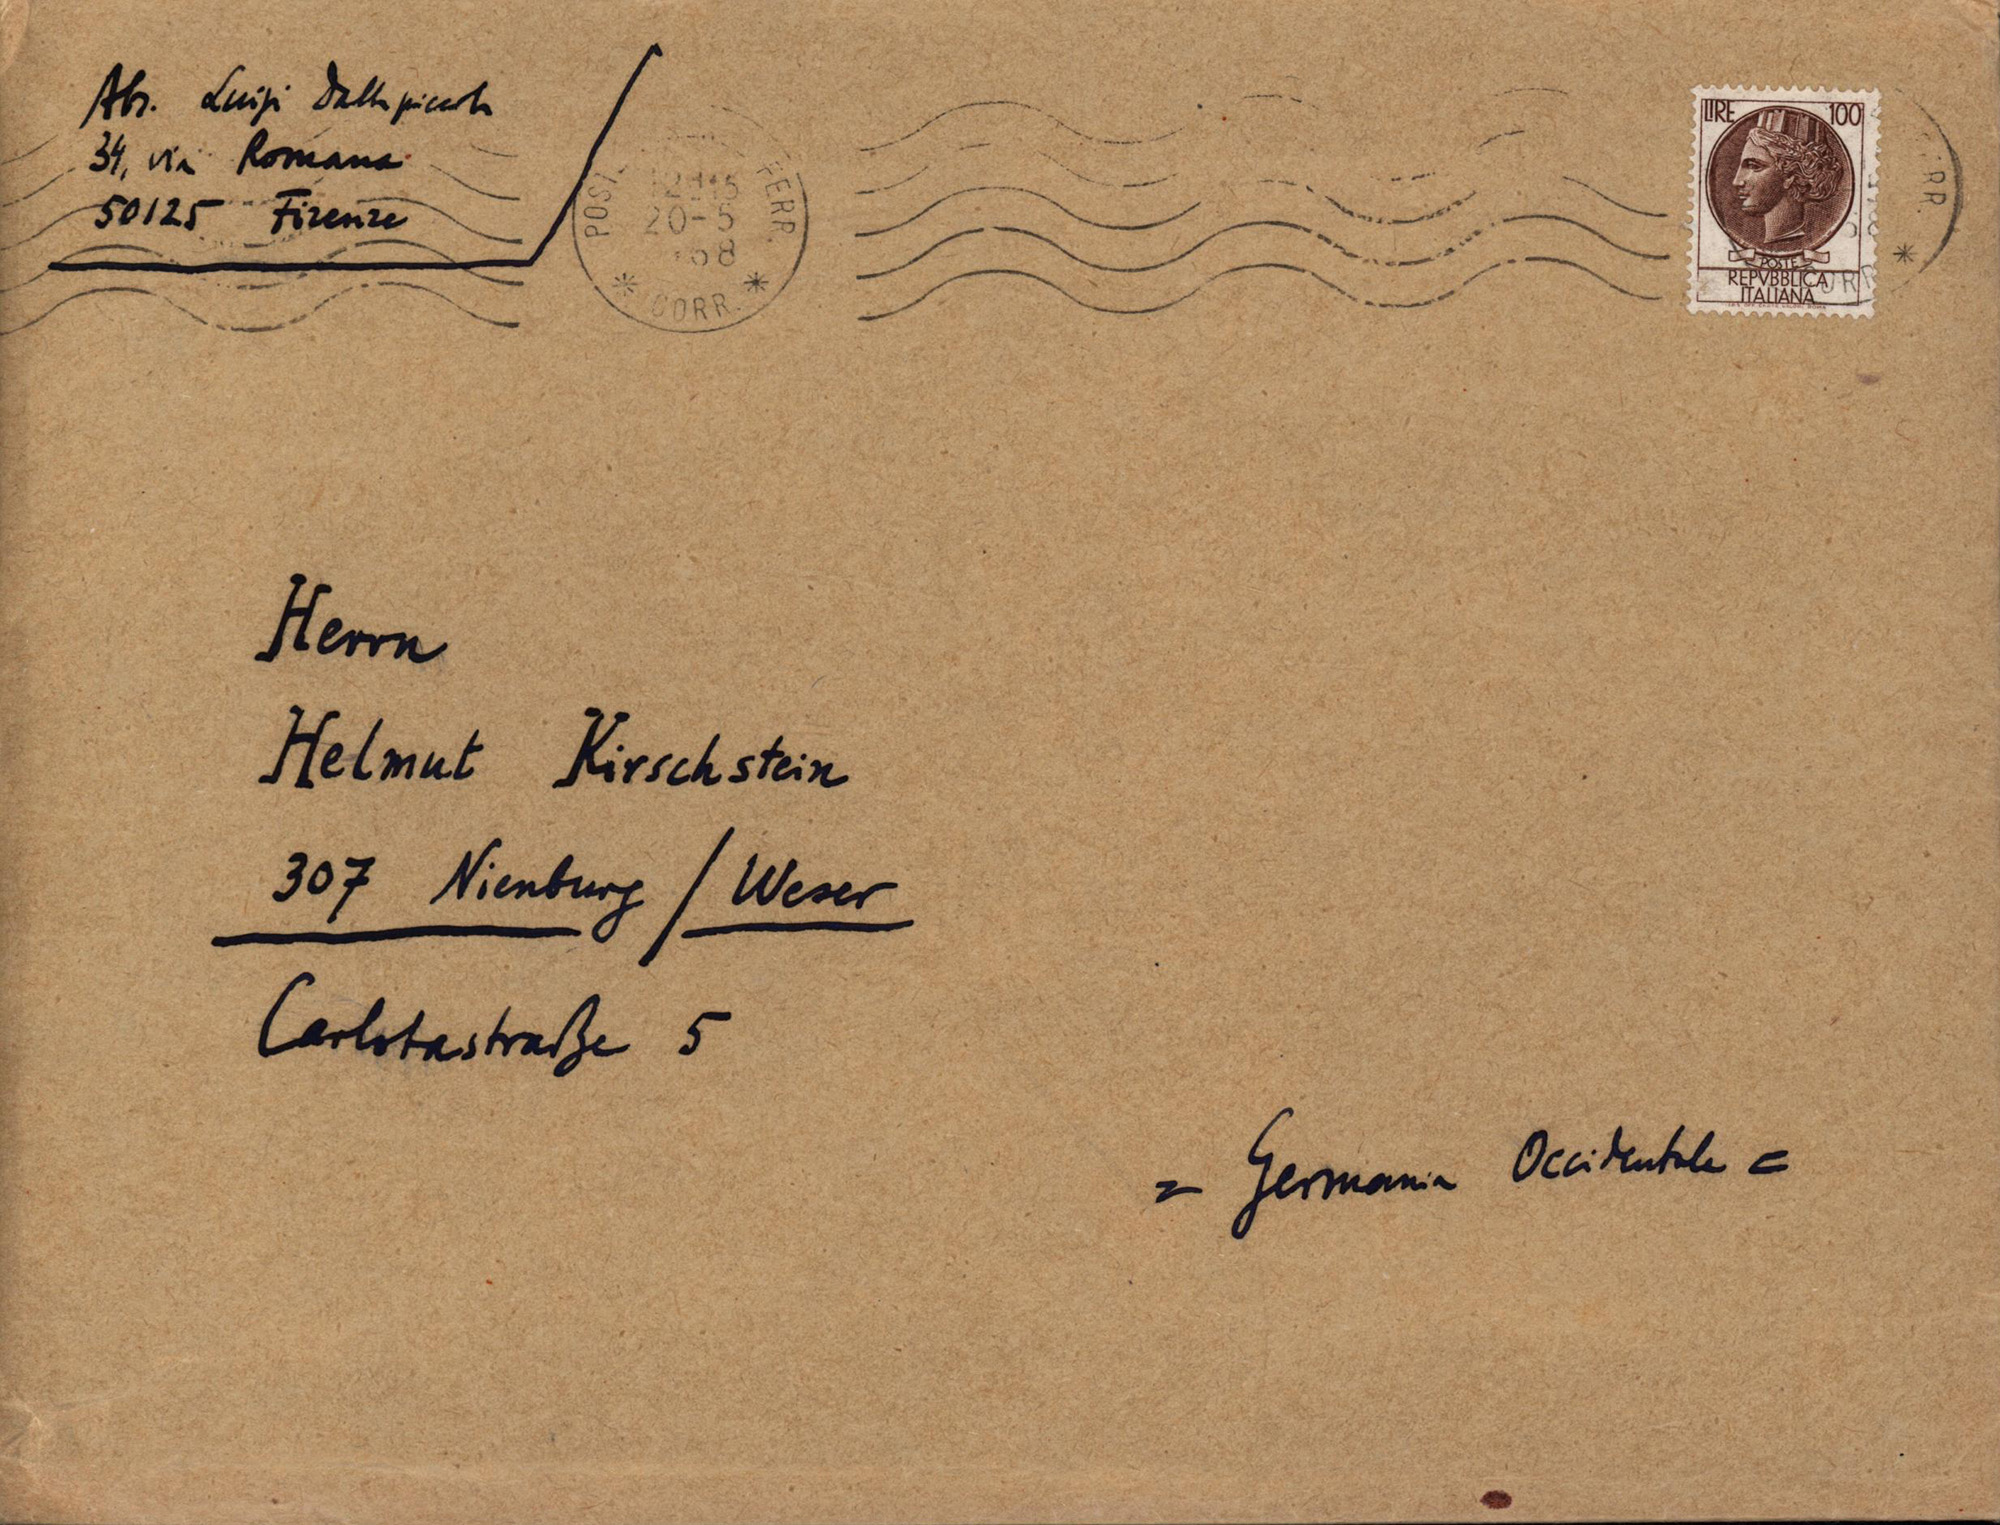 Abs. Luigi Dallapiccola
34, via Romana
50125 Firenze
POST FERR.
20-5
68
CORR.
LIRE 100
POSTE
REPVBBLICA
ITALIANA
Herrn
Helmut Kirschstein
307 Nienburg / Weser
Carlotastraße 5
= Germania Occidentale =